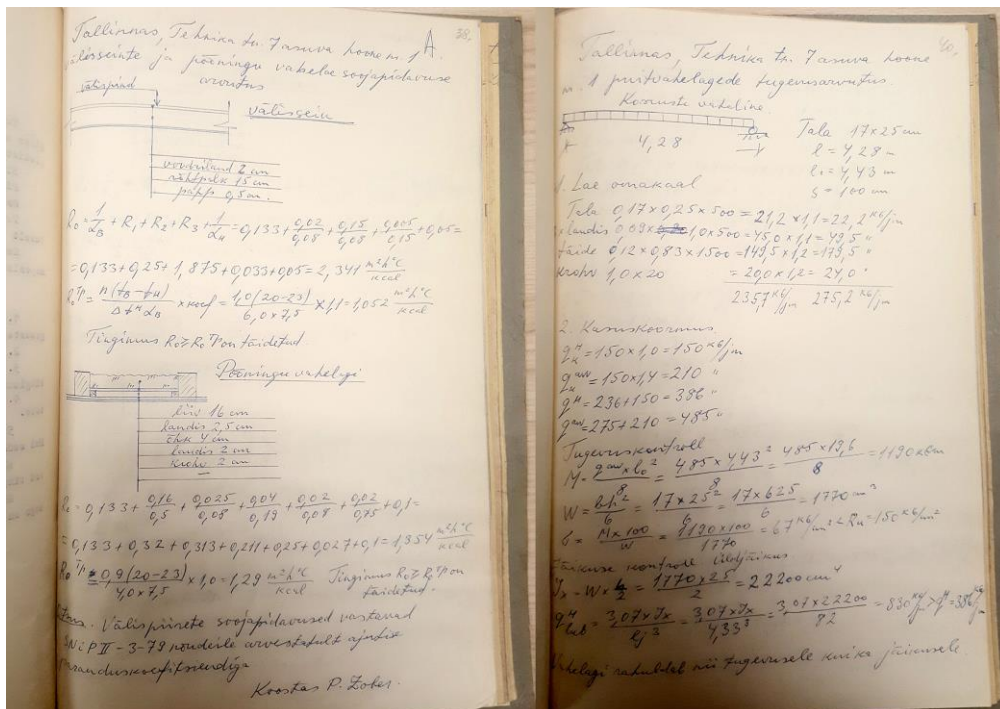 38.
A.
Tallinnas, Tehnika tn. 7 asuva hoone nr. 1
välisseinte ja pööningu vahelae soojapidavuse
arvutus
välispind
välissein
voodrilaud 2 cm
rõhtpalk 15 cm
papp 0,5 cm.
R₀ = 1/αв + R₁ + R₂ + R₃ + 1/αн = 0,133 + 0,02/0,08 + 0,15/0,08 + 0,005/0,15 + 0,05 =
= 0,133 + 0,25 + 1,875 + 0,033 + 0,05 = 2,341 m²h°C/kcal
R₀ᵀᵖ = n(tв - tн)/Δtᴴ αв × koef = 1,0(20-23)/6,0×7,5 × 1,1 = 1,052 m²h°C/kcal
Tingimus R₀ ≥ R₀ᵀᵖ on täidetud
Pööningu vahelagi
liiv 16 cm
laudis 2,5 cm
õhk 4 cm
laudis 2 cm
krohv 2 cm
R₀ = 0,133 + 0,16/0,5 + 0,025/0,08 + 0,04/0,19 + 0,02/0,08 + 0,02/0,75 + 0,1 =
= 0,133 + 0,32 + 0,313 + 0,211 + 0,25 + 0,027 + 0,1 = 1,354 m²h°C/kcal
R₀ᵀᵖ = 0,9(20-23)/4,0×7,5 × 1,0 = 1,29 m²h°C/kcal Tingimus R₀ ≥ R₀ᵀᵖ on
täidetud.
Välispiirete soojapidavused vastavad
SNiP II-3-79 nõudeile arvestatult ajutise
paranduskoefitsiendiga
Koostas P.
40.
Tallinnas, Tehnika tn. 7 asuva hoone
nr. 1 puitvahelagede tugevusarvutus
Korruste vaheline
4,28
Tala 17×25 cm
l = 4,28 m
l₀ = 4,43 m
s = 100 cm
1. Lae omakaal
Tala 0,17×0,25×500 = 21,2×1,1 = 22,2 kG/jm
laudis 0,09× 1,0×500 = 45,0×1,1 = 49,5 "
täide 0,12×0,83×1500 = 149,5×1,2 = 179,5 "
krohv 1,0×20 = 20,0×1,2 = 24,0 "
235,7 kG/jm 275,2 kG/jm
2. Kasuskoormus.
qᴴ = 150×1,0 = 150 kG/jm
qᵃʳᵛ = 150×1,4 = 210 "
qᴴ = 236+150 = 386 "
qᵃʳᵛ = 275+210 = 485 "
Tugevuskontroll
M = qᵃʳᵛ×l₀²/8 = 485×4,43²/8 = 485×19,6/8 = 1190 kGm
W = bh²/6 = 17×25²/6 = 17×625/6 = 1770 cm³
σ = M×100/W = 1190×100/1770 = 67 kG/cm² < Rи = 150 kG/cm²
Jäikuse kontroll üldjäikus.
Jx = W×h/2 = 1770×25/2 = 22200 cm⁴
qᴴlub = 3,07×Jx/l₀³ = 3,07×Jx/4,33³ = 3,07×22200/82 = 830 kG/jm > qᴴ = 386 kG/jm
Vahelagi rahuldab nii tugevusele kui ka jäikusele.